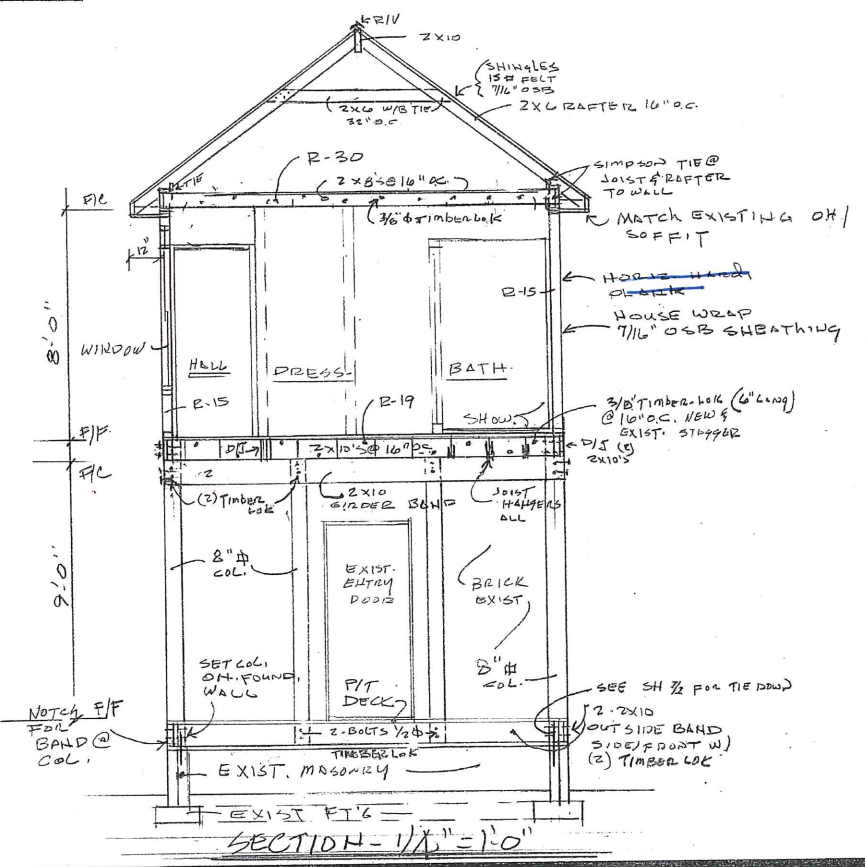 R/V
2X10
SHINGLES
15# FELT
7/16" OSB
2X6 W/B TIE
32" O.C.
2X6 RAFTER 16" O.C.
R-30
TIE
2X8'S @ 16" O.C.
SIMPSON TIE @
JOIST & RAFTER
TO WALL
F/C
3/8" Φ TIMBERLOK
MATCH EXISTING OH/
SOFFIT
12"
R-15
HORIZ. HARDI
PLANK
HOUSE WRAP
7/16" OSB SHEATHING
8'-0"
WINDOW
HALL
DRESS.
BATH.
R-15
R-19
SHOW.
3/8" TIMBER-LOK (6" LONG)
@ 16" O.C. NEW &
EXIST. STAGGER
F/F
D/J
2X10'S @ 16" O.C.
D/J (2)
2X10'S
F/C
2
(2) TIMBER
LOK
2X10
GIRDER BAND
JOIST
HANGERS
ALL
8" Φ
COL.
EXIST.
ENTRY
DOOR
BRICK
EXIST
9'-0"
SET COL.
ON FOUND.
WALL
P/T
DECK
8" Φ
COL.
SEE SH 3/2 FOR TIE DOWN
NOTCH F/F
FOR
BAND @
COL.
2-BOLTS 1/2 Φ
TIMBERLOK
2-2X10
OUTSIDE BAND
SIDE/FRONT W/
(2) TIMBER LOK
EXIST. MASONRY
EXIST FT'G
SECTION - 1/4" = 1'-0"